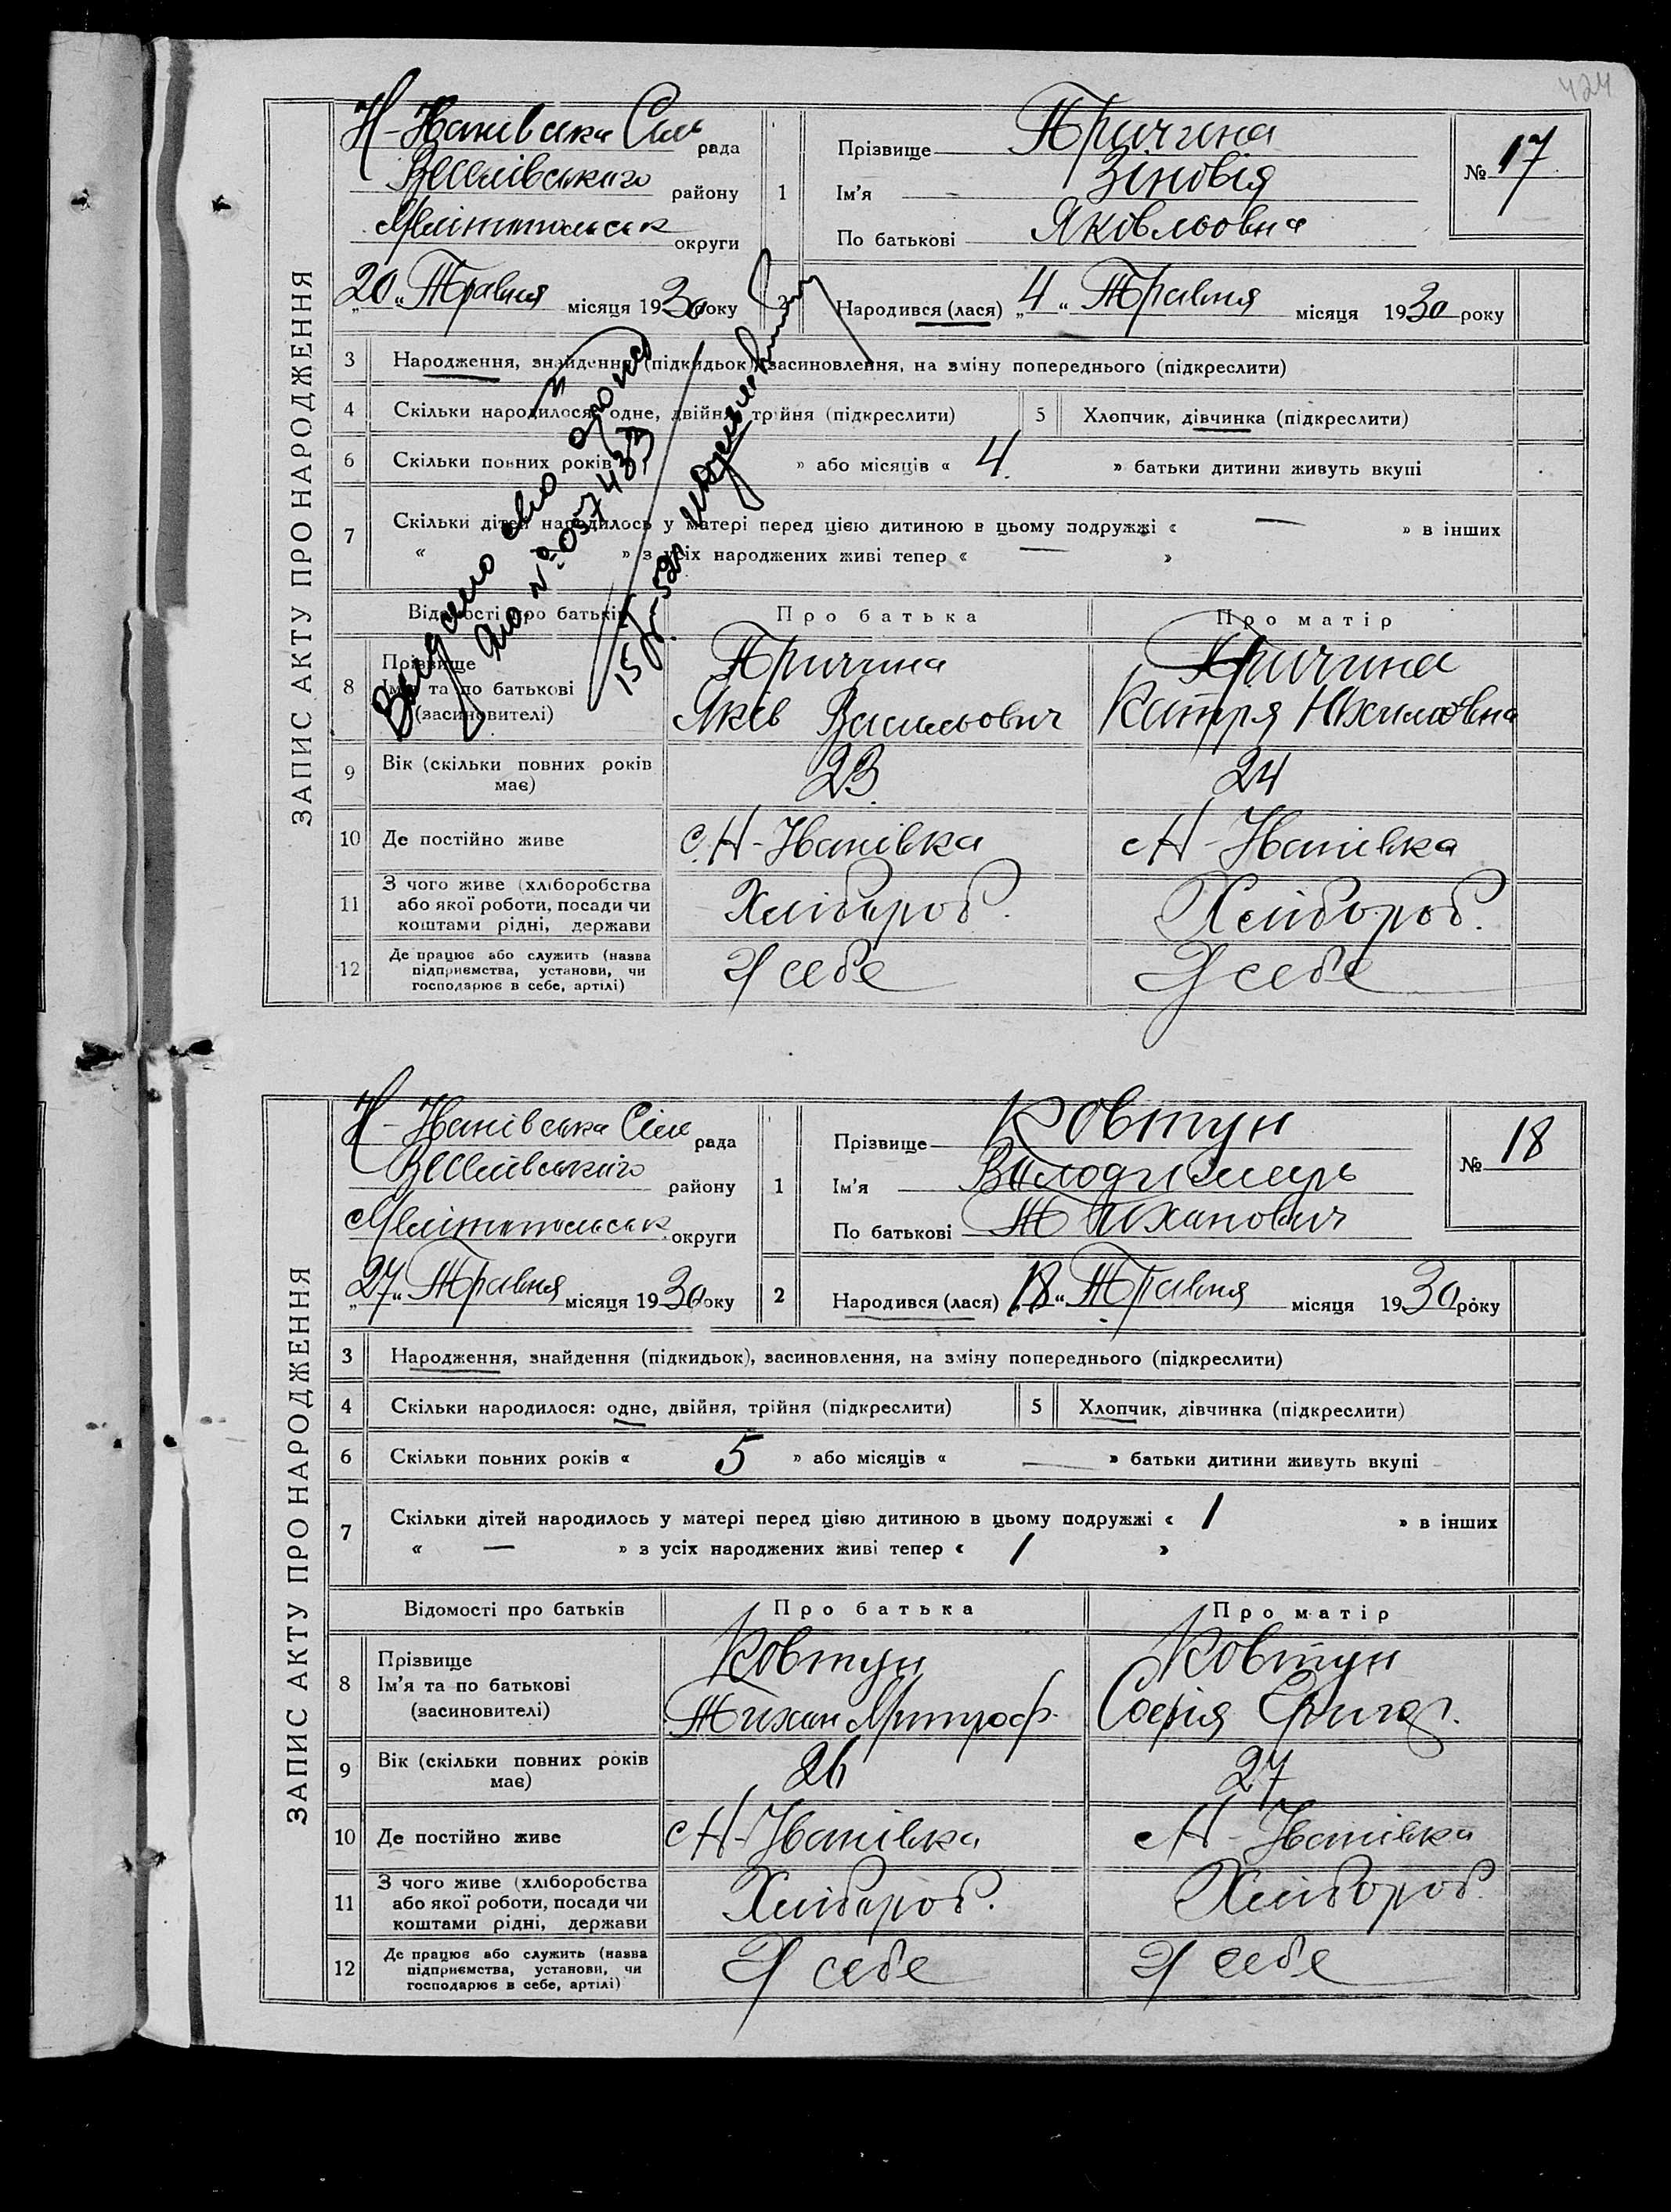 424
ЗАПИС АКТУ ПРО НАРОДЖЕННЯ
Н-Іванівська Сіль рада
Веселівського району
Мелітопольськ округи
„20“ Травня місяця 1930 року
1
Прізвище Причина
Ім'я Зіновія
По батькові Яківльовна
№ 17
2
Народився (лася) „4“ Травня місяця 1930 року
3 Народження, знайдення (підкидьок), засиновлення, на зміну попереднього (підкреслити)
4 Скільки народилося: одне, двійня, трійня (підкреслити)
5 Хлопчик, дівчинка (підкреслити)
6 Скільки повних років « » або місяців « 4 » батьки дитини живуть вкупі
7 Скільки дітей народилось у матері перед цією дитиною в цьому подружжі « — » в інших
« » з усіх народжених живі тепер « — »
Видано
№ 057433
15
Відомості про батьків Про батька Про матір
8 Прізвище
Ім'я та по батькові
(засиновителі)
Причина
Яків Васильович
Причина
Катря Юхимовна
9 Вік (скільки повних років має) 23 24
10 Де постійно живе с. Н-Іванівка с Н-Іванівка
11 З чого живе (хліборобства
або якої роботи, посади чи
коштами рідні, держави
Хлібороб. Хлібороб.
12 Де працює або служить (назва
підприємства, установи, чи
господарює в себе, артілі)
У себе У себе
ЗАПИС АКТУ ПРО НАРОДЖЕННЯ
Н-Іванівська Сіль рада
Веселівського району
Мелітопольськ округи
„27“ Травня місяця 1930 року
1
Прізвище Ковтун
Ім'я Володимирь
По батькові Тиханович
№ 18
2
Народився (лася) „18“ Травня місяця 1930 року
3 Народження, знайдення (підкидьок), засиновлення, на зміну попереднього (підкреслити)
4 Скільки народилося: одне, двійня, трійня (підкреслити)
5 Хлопчик, дівчинка (підкреслити)
6 Скільки повних років « 5 » або місяців « — » батьки дитини живуть вкупі
7 Скільки дітей народилось у матері перед цією дитиною в цьому подружжі « 1 » в інших
« — » з усіх народжених живі тепер « 1 »
Відомості про батьків Про батька Про матір
8 Прізвище
Ім'я та по батькові
(засиновителі)
Ковтун
Тихан Митроф.
Ковтун
Софія Григор.
9 Вік (скільки повних років має) 26 27
10 Де постійно живе с Н-Іванівка с Н-Іванівка
11 З чого живе (хліборобства
або якої роботи, посади чи
коштами рідні, держави
Хлібороб. Хлібороб.
12 Де працює або служить (назва
підприємства, установи, чи
господарює в себе, артілі)
У себе У себе